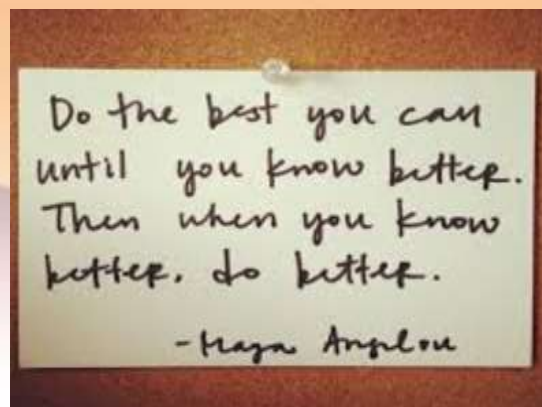 Do the best you can
until you know better.
Then when you know
better, do better.
-Maya Angelou